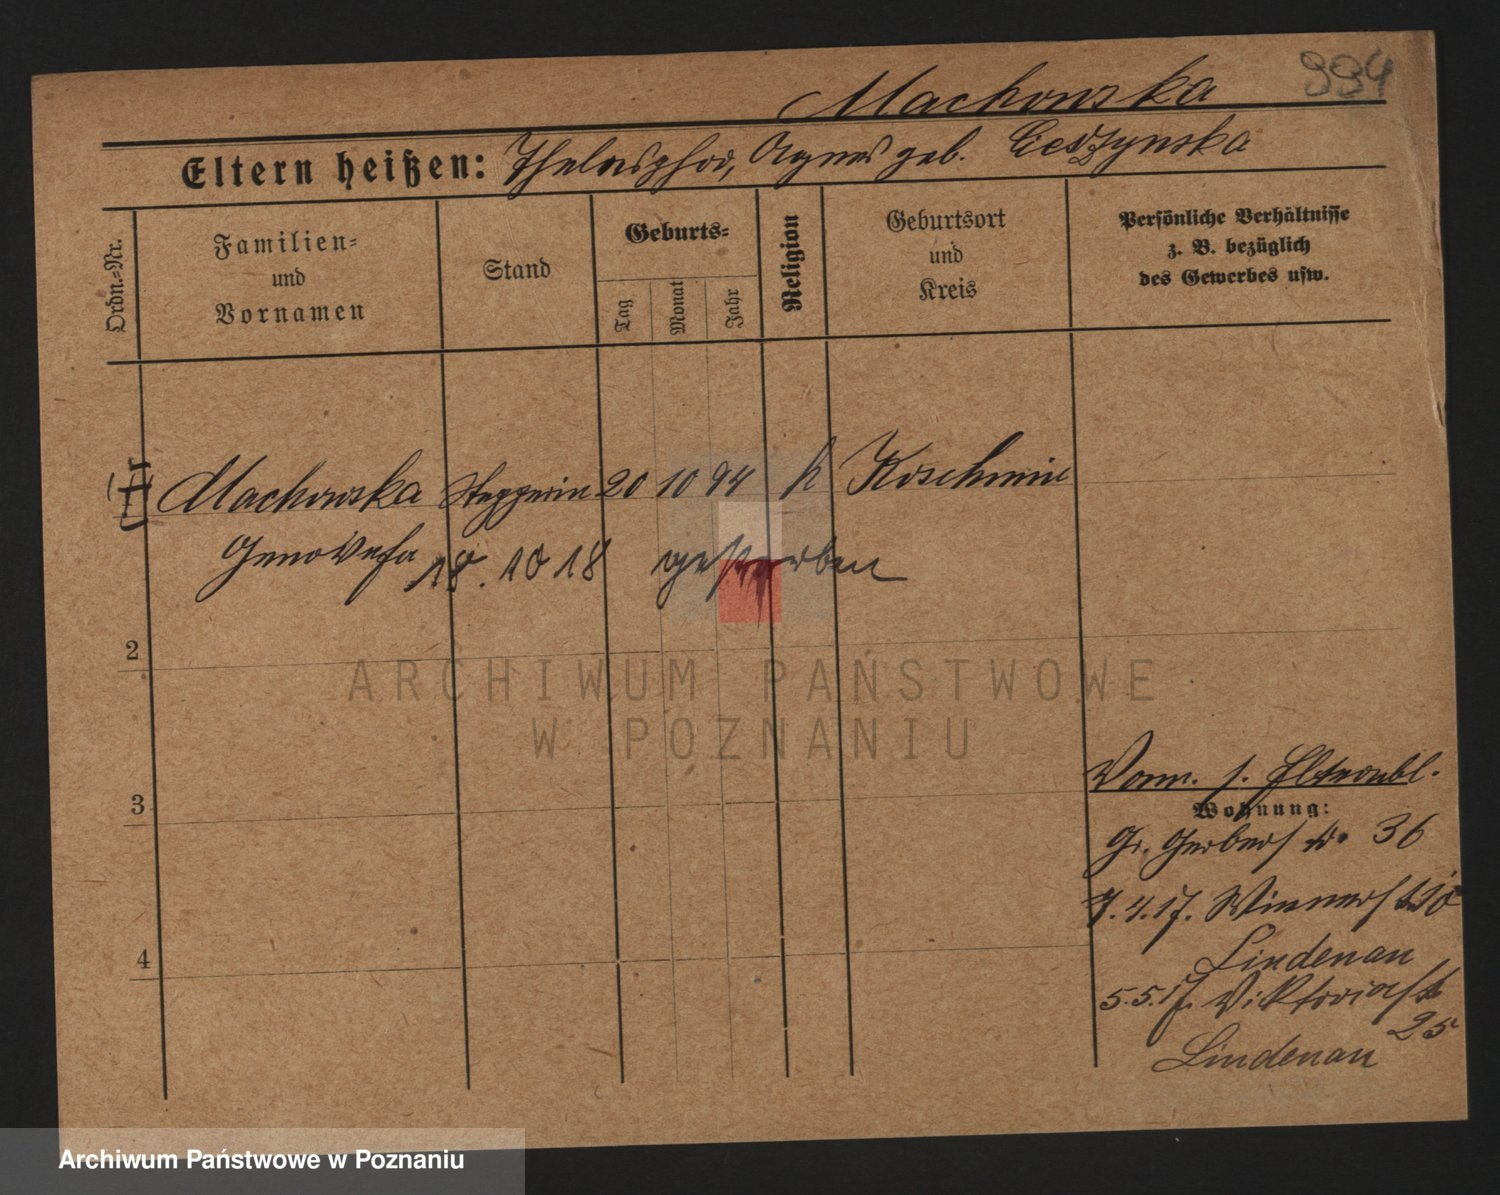 994
Machowska
Eltern heißen: Thelesphor, Agnes geb. Ceszynska
Ordn.-Nr.
Familien-
und
Vornamen
Stand
Geburts-
Tag
Monat
Jahr
Religion
Geburtsort
und
Kreis
Persönliche Verhältnisse
z. B. bezüglich
des Gewerbes usw.
Machowska Stepperin 20 10 94 k Koschmin
Genovefa 18. 10 18 gestorben
2
3
4
Vorm. s. Elternbl.
Wohnung:
Gr. Gerberstr. 36
7.4.17. Wienerst 10
Lindenau
5.5.17. Viktoriast
25
Lindenau
ARCHIWUM PAŃSTWOWE
W POZNANIU
Archiwum Państwowe w Poznaniu